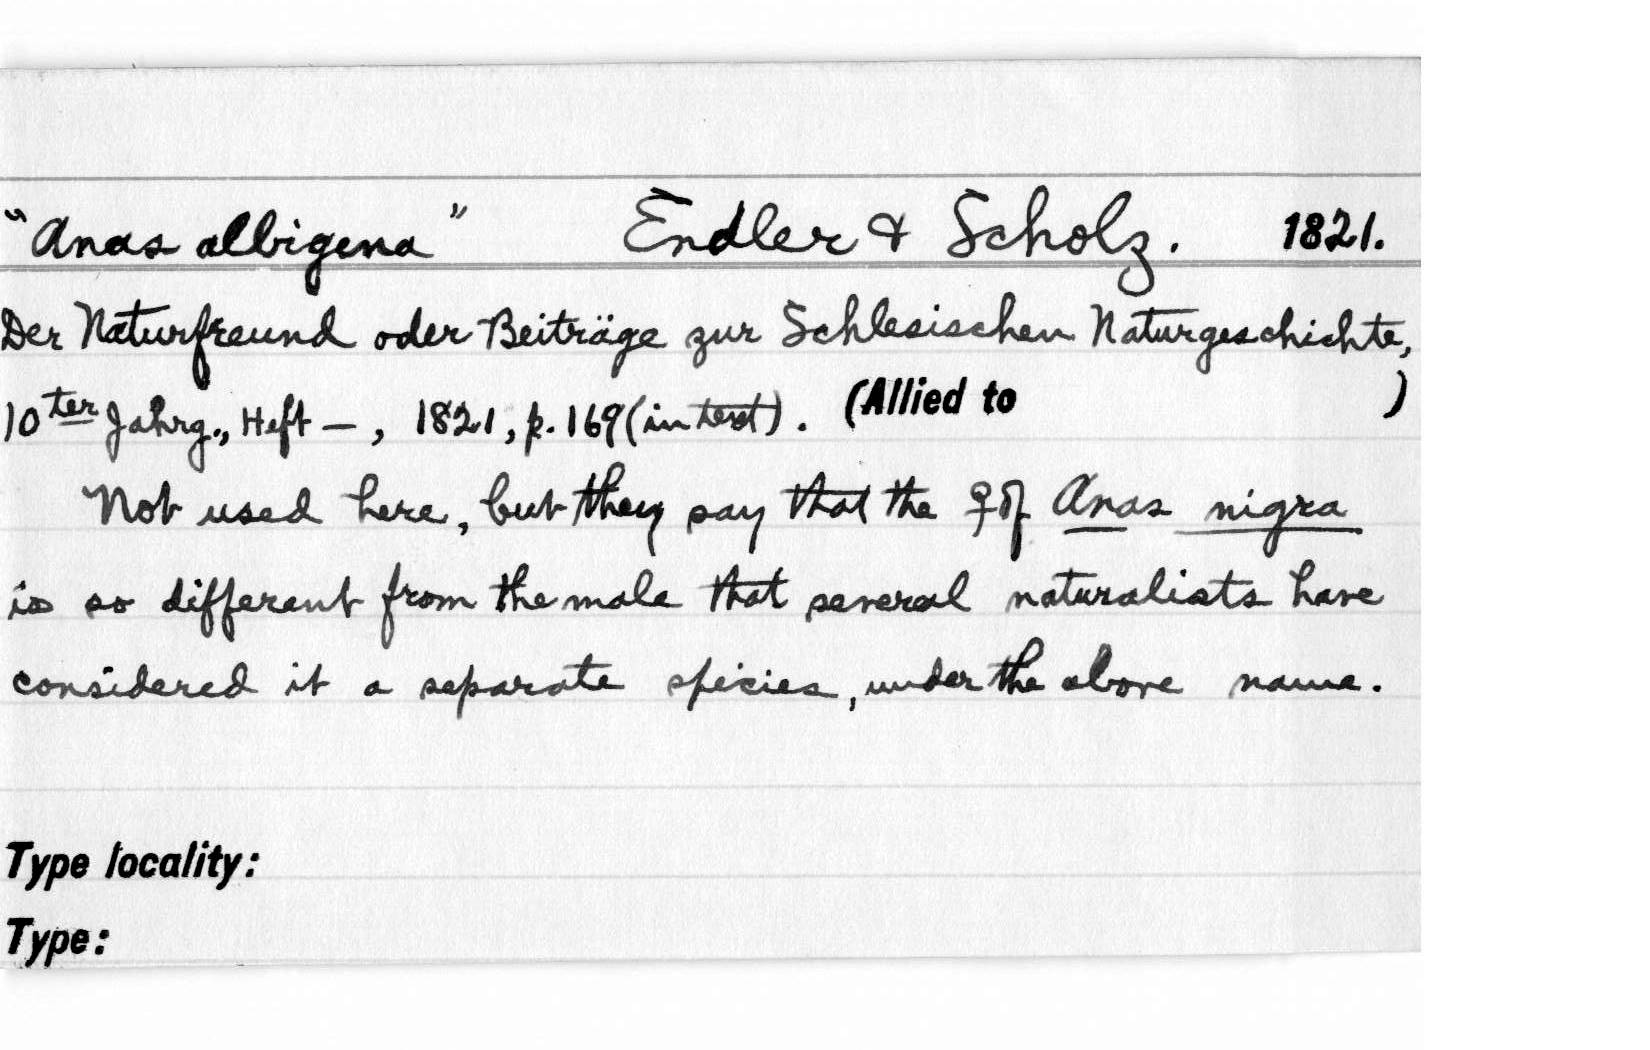 "Anas albigena" Endler & Scholz. 1821.
Der Naturfreund oder Beiträge zur Schlesischen Naturgeschichte,
10ter Jahrg., Heft — , 1821, p. 169 (in text). (Allied to )
Not used here, but they say that the ♀ of Anas nigra
is so different from the male that several naturalists have
considered it a separate species, under the above name.
Type locality:
Type: